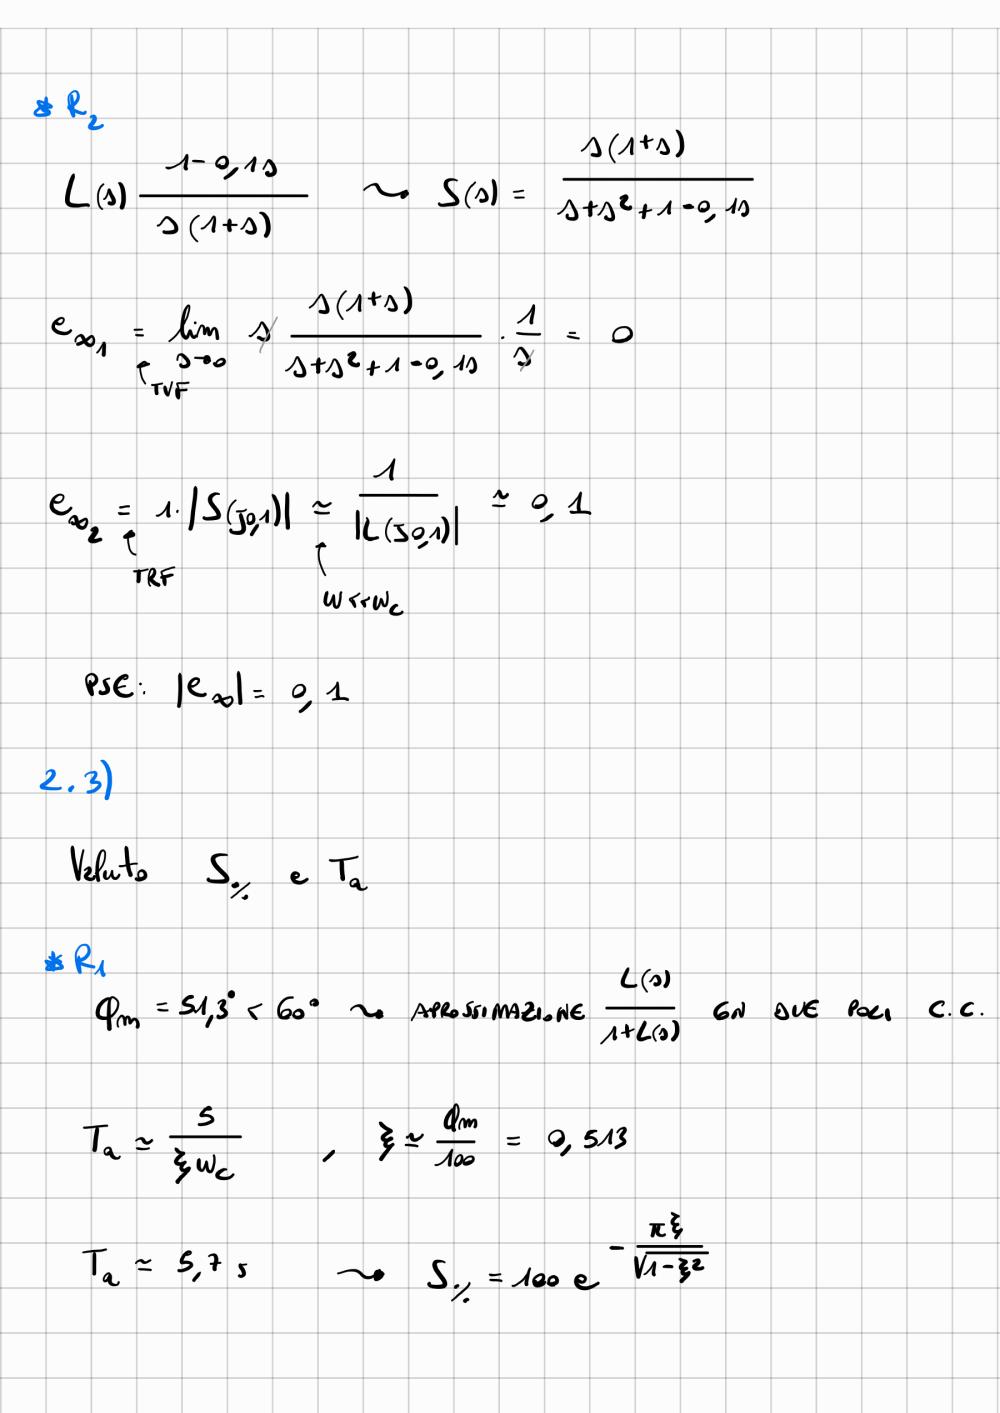 * R₂
L(s) (1-0,1s)/(s(1+s)) ⇝ S(s) = (s(1+s))/(s+s²+1-0,1s)
e∞₁ = lim s→0 s (s(1+s))/(s+s²+1-0,1s) · 1/s = 0
↑ TVF
e∞₂ = 1·|S(j0,1)| ≃ 1/|L(j0,1)| ≃ 0,1
↑ TRF
↑ ω<<ωc
PSE: |e∞| = 0,1
2.3)
Valuto S.% e Ta
* R₁
φm = 51,3° < 60° ⇝ APROSSIMAZIONE L(s)/(1+L(s)) CON DUE POLI C.C.
Ta ≃ 5/(ξωc) , ξ ≃ φm/100 = 0,513
Ta ≃ 5,7 s ⇝ S.% = 100 e^(-πξ/√(1-ξ²))